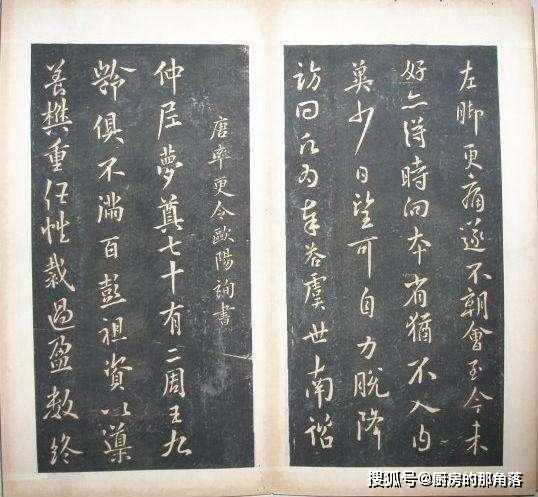 左脚更痛遂不朝會至今未
好亦得時向本省猶不入内
冀少日望可自力脱降
訪問願為奉答虞世南諮
唐率更令歐陽詢書
仲尼夢奠七十有二周王九
齡俱不滿百彭祖資以導
養樊重任性裁過盈數終
搜狐号@厨房的那角落